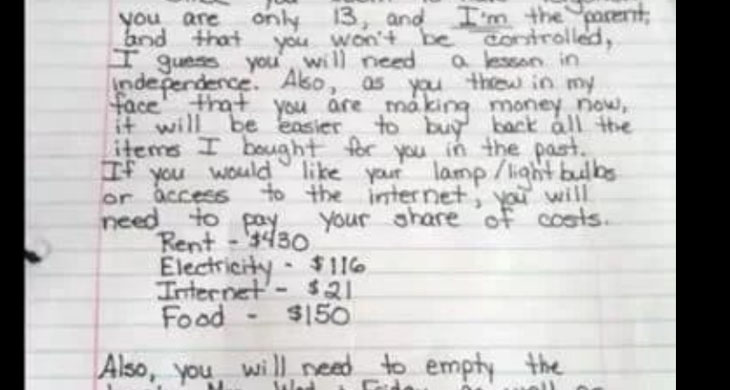 you are only 13, and I'm the parent,
and that you won't be controlled,
I guess you will need a lesson in
independence. Also, as you threw in my
face that you are making money now,
it will be easier to buy back all the
items I bought for you in the past.
If you would like your lamp/lightbulbs
or access to the internet, you will
need to pay your share of costs.
Rent - $430
Electricity - $116
Internet - $21
Food - $150
Also, you will need to empty the